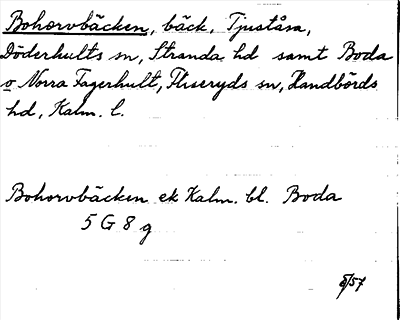 Bohorvbäcken, bäck, Tjuståsa,
Döderhults sn, Stranda hd samt Boda
o Norra Fagerhult, Fliseryds sn, Handbörds
hd, Kalm. l.
Bohorvbäcken ek Kalm. bl. Boda
5 G 8 g
8/57